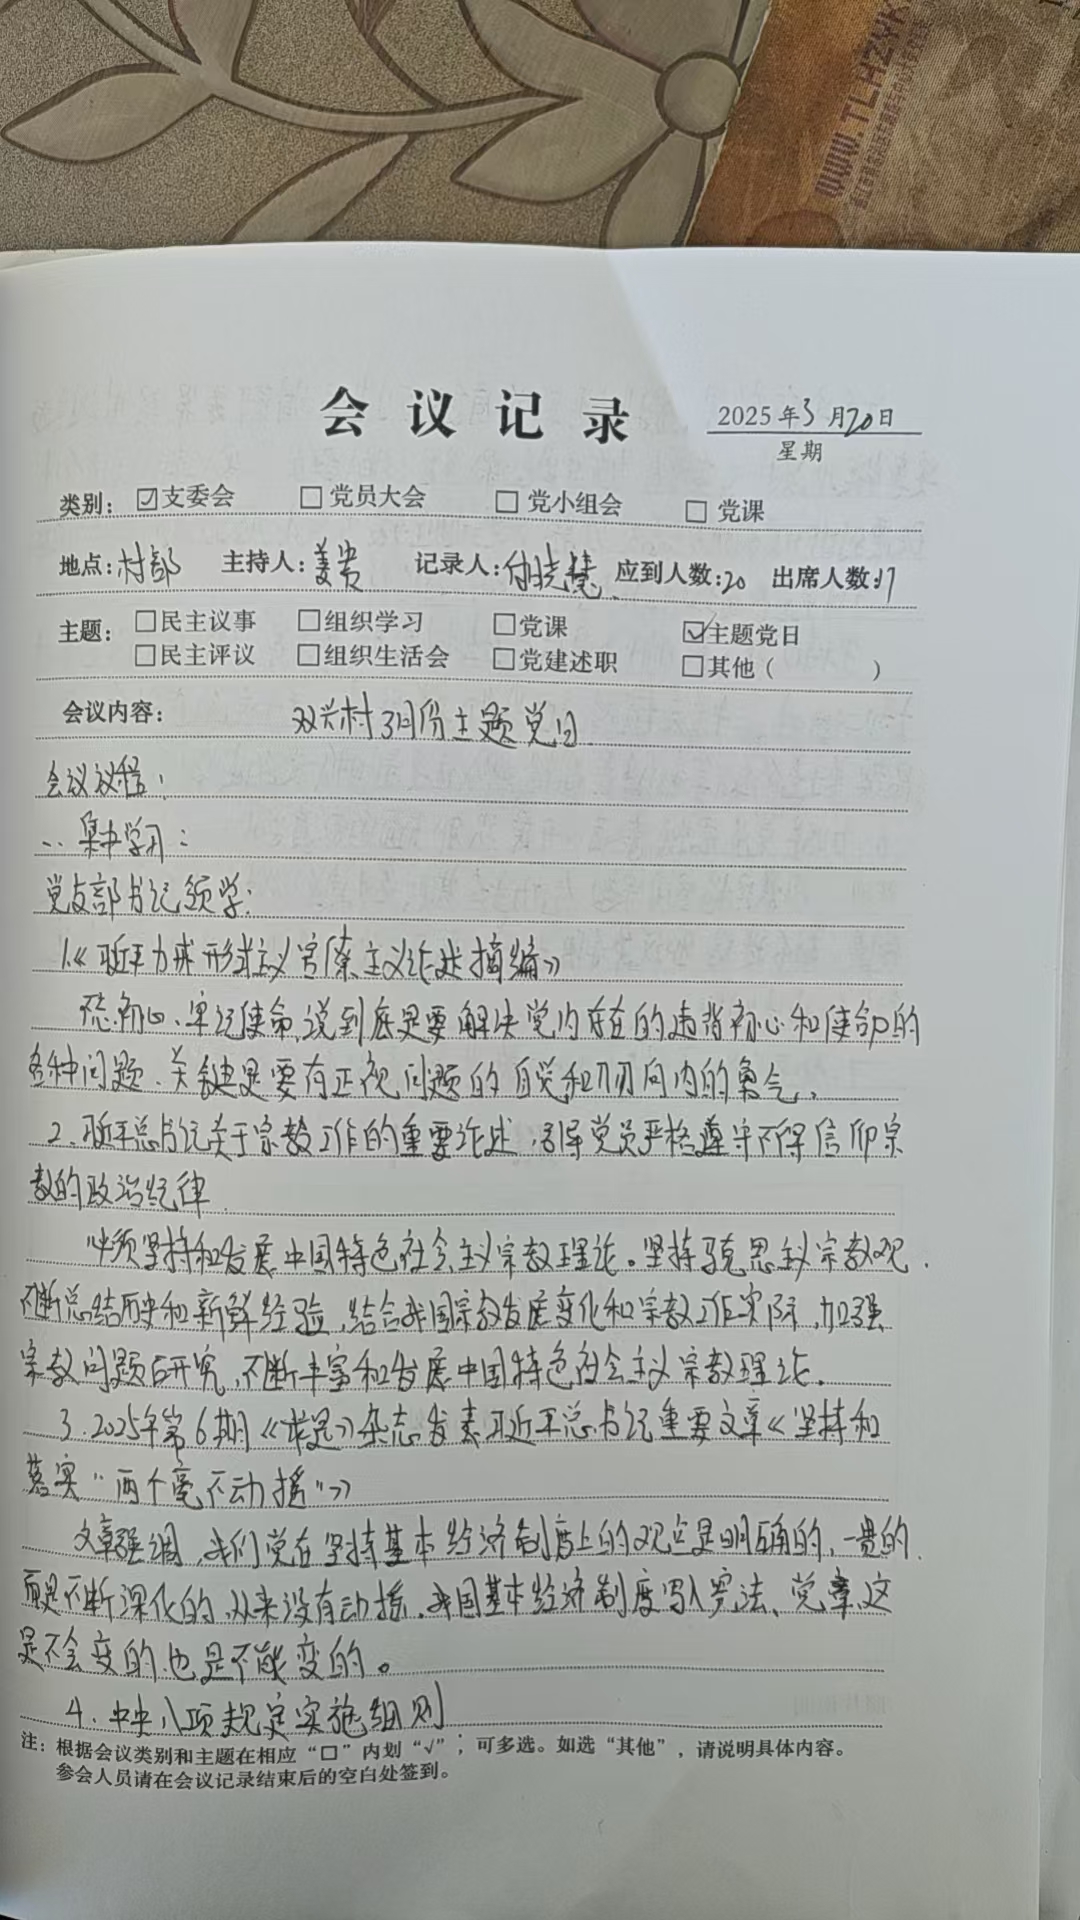 WWW.TLHZYK
会议记录
2025年3月20日
星期
类别: ☑支委会 □党员大会 □党小组会 □党课
地点:村部 主持人:姜贵 记录人:付晓慧 应到人数:20 出席人数:17
主题: □民主议事 □组织学习 □党课 ☑主题党日
□民主评议 □组织生活会 □党建述职 □其他( )
会议内容: 双兴村3月份主题党日
会议议程:
一、集中学习:
党支部书记领学:
1.《习近平力戒形式主义官僚主义论述摘编》
不忘初心、牢记使命,说到底是要解决党内存在的违背初心和使命的
各种问题、关键是要有正视问题的自觉和刀刃向内的勇气。
2.习近平总书记关于宗教工作的重要论述,引导党员严格遵守不得信仰宗
教的政治纪律
必须坚持和发展中国特色社会主义宗教理论。坚持马克思主义宗教观,
不断总结历史和新鲜经验,结合我国宗教发展变化和宗教工作实际,加强
宗教问题研究,不断丰富和发展中国特色社会主义宗教理论。
3.2025年第6期《求是》杂志发表习近平总书记重要文章《坚持和
落实“两个毫不动摇”》
文章强调,我们党在坚持基本经济制度上的观点是明确的,一贯的,
而是不断深化的,从来没有动摇。我国基本经济制度写入宪法、党章,这
是不会变的,也是不能变的。
4.中央八项规定实施细则
注: 根据会议类别和主题在相应“□”内划“√”;可多选。如选“其他”,请说明具体内容。
参会人员请在会议记录结束后的空白处签到。